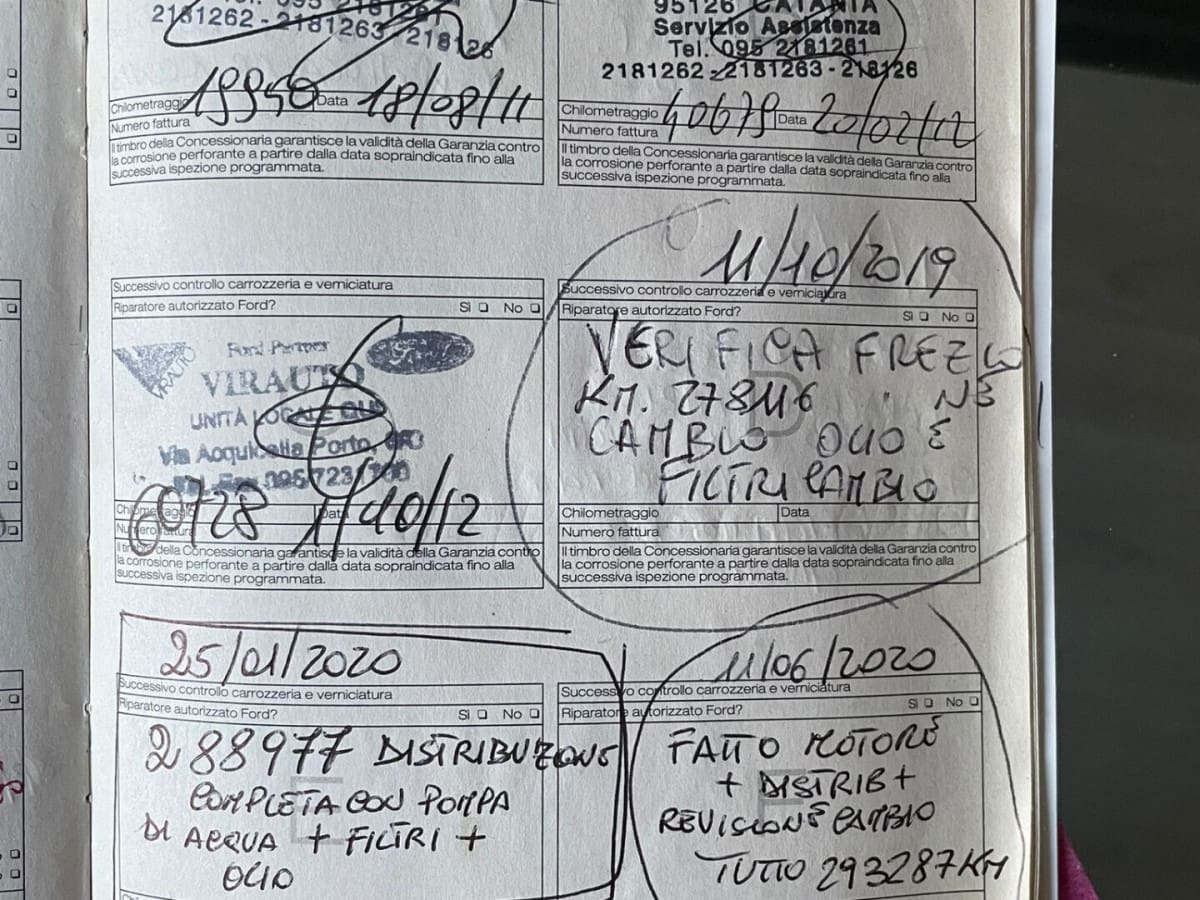 2181262 - 2181263 - 218126
Chilometraggio 19950 Data 18/08/11
Numero fattura
Il timbro della Concessionaria garantisce la validità della Garanzia contro
la corrosione perforante a partire dalla data sopraindicata fino alla
successiva ispezione programmata.
95126 CATANIA
Servizio Assistenza
Tel. 095 2181261
2181262 - 2181263 - 218126
Chilometraggio 40679 Data 20/02/12
Numero fattura
Il timbro della Concessionaria garantisce la validità della Garanzia contro
la corrosione perforante a partire dalla data sopraindicata fino alla
successiva ispezione programmata.
Successivo controllo carrozzeria e verniciatura
Riparatore autorizzato Ford? Sì No
VIRAUTO
Ford Partner
VIRAUTO
UNITÀ LOCALE
Via Acquicella Porto,
60728 1/10/12
Chilometraggio Data
Numero fattura
Il timbro della Concessionaria garantisce la validità della Garanzia contro
la corrosione perforante a partire dalla data sopraindicata fino alla
successiva ispezione programmata.
11/10/2019
Successivo controllo carrozzeria e verniciatura
Riparatore autorizzato Ford? Sì No
VERIFICA
KM. 278116
CAMBIO OLIO E
FILTRI CAMBIO
Chilometraggio Data
Numero fattura
Il timbro della Concessionaria garantisce la validità della Garanzia contro
la corrosione perforante a partire dalla data sopraindicata fino alla
successiva ispezione programmata.
25/01/2020
Successivo controllo carrozzeria e verniciatura
Riparatore autorizzato Ford? Sì No
288977 DISTRIBUZIONE
COMPLETA CON POMPA
DI ACQUA + FILTRI +
OLIO
11/06/2020
Successivo controllo carrozzeria e verniciatura
Riparatore autorizzato Ford? Sì No
FATTO MOTORE
+ DISTRIB +
REVISIONE CAMBIO
TUTTO 293287KM